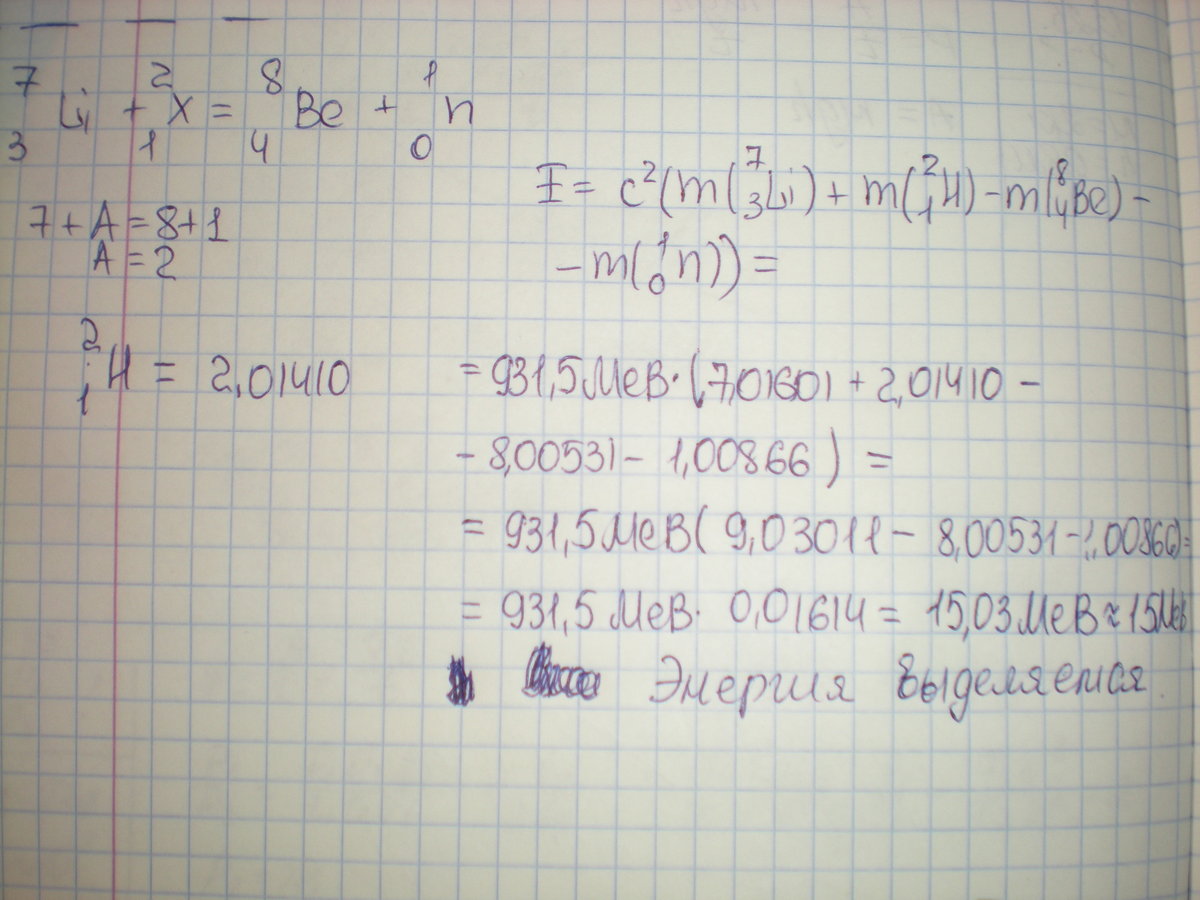 ⁷₃Li + ²₁X = ⁸₄Be + ¹₀n
7 + A = 8+1
A = 2
²₁H = 2,01410
E = c²(m(⁷₃Li) + m(²₁H) - m(⁸₄Be) -
- m(¹₀n)) =
= 931,5 МеВ · (7,01601 + 2,01410 -
- 8,00531 - 1,00866) =
= 931,5 МеВ ( 9,03011 - 8,00531 - 1,00866) =
= 931,5 МеВ · 0,01614 = 15,03 МеВ ≈ 15 МеВ
Энергия выделяется.